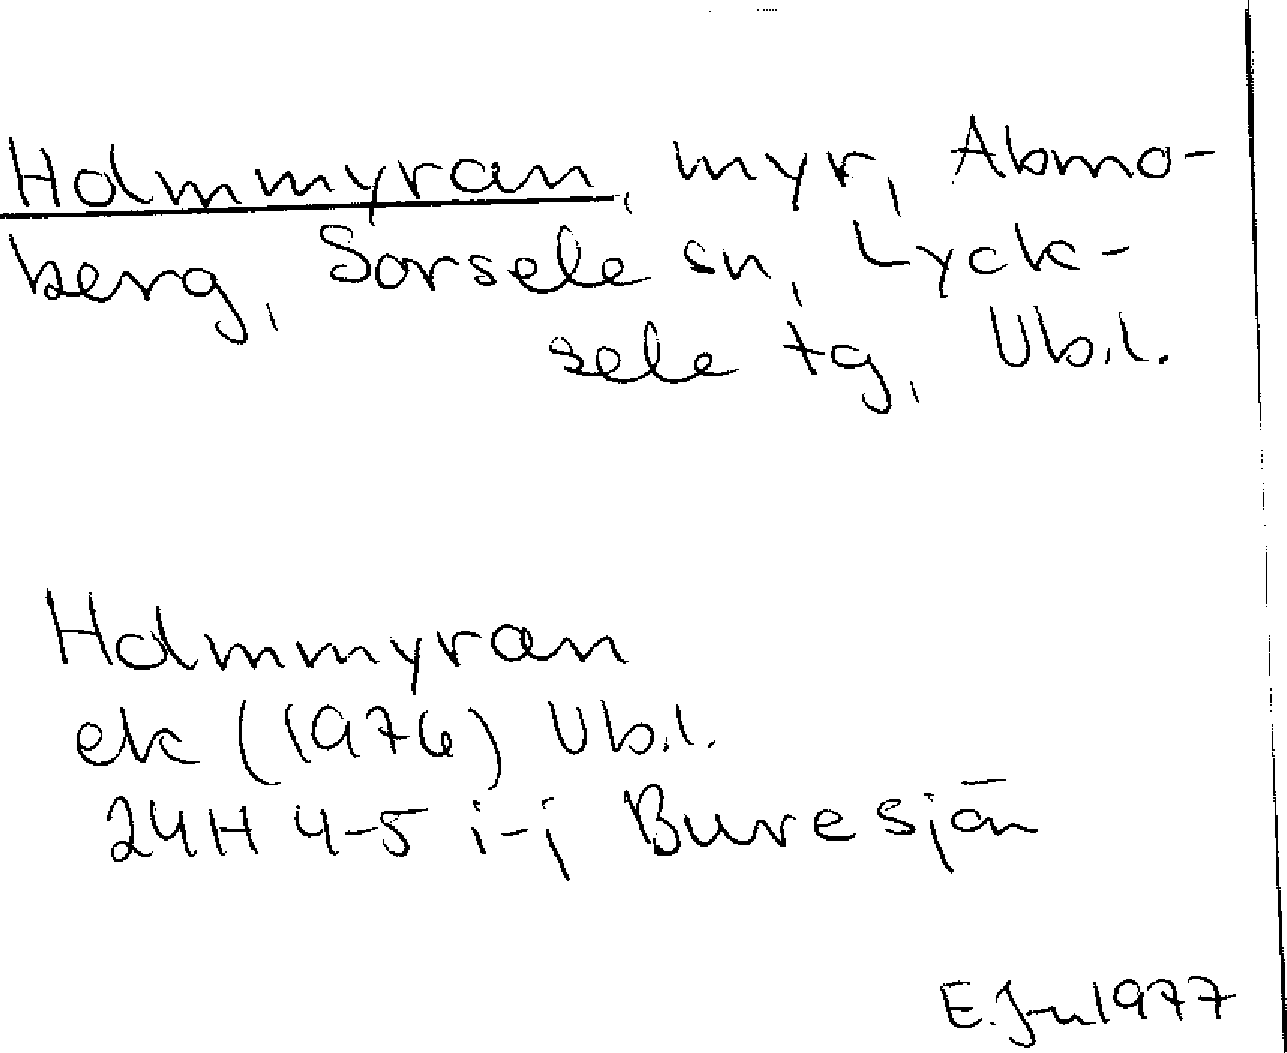 Holmmyran, myr, Abmo-
berg, Sorsele sn, Lyck-
sele tg, Vb.l.
Holmmyran
ek (1976) Vb.l.
24H 4-5 i-j Buresjön
E.Jn 1977